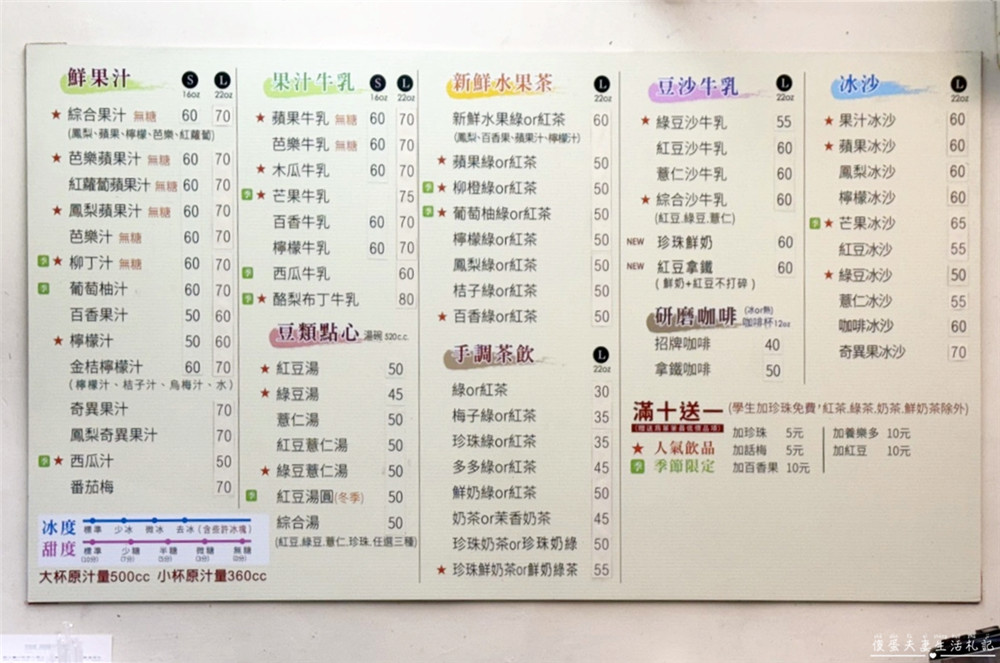 鮮果汁 S 16oz L 22oz
★ 綜合果汁 無糖 60 70
(鳳梨、蘋果、檸檬、芭樂、紅蘿蔔)
★ 芭樂蘋果汁 無糖 60 70
紅蘿蔔蘋果汁 無糖 60 70
★ 鳳梨蘋果汁 無糖 60 70
芭樂汁 無糖 60 70
季 ★ 柳丁汁 無糖 60 70
季 葡萄柚汁 60 70
百香果汁 50 60
★ 檸檬汁 50 60
金桔檸檬汁 60 70
(檸檬汁、桔子汁、烏梅汁、水)
奇異果汁 70
鳳梨奇異果汁 70
季 ★ 西瓜汁 50
番茄梅 70
冰度 標準 少冰 微冰 去冰(含些許冰塊)
甜度 標準 少糖 半糖 微糖 無糖
(10分) (7分) (5分) (3分) (0分)
大杯原汁量500cc 小杯原汁量360cc
果汁牛乳 S 16oz L 22oz
★ 蘋果牛乳 無糖 60 70
芭樂牛乳 無糖 60 70
★ 木瓜牛乳 60 70
季 ★ 芒果牛乳 75
百香牛乳 60 70
檸檬牛乳 60 70
季 西瓜牛乳 60
季 ★ 酪梨布丁牛乳 80
豆類點心 湯碗 520c.c.
★ 紅豆湯 50
★ 綠豆湯 45
薏仁湯 50
紅豆薏仁湯 50
★ 綠豆薏仁湯 50
季 紅豆湯圓(冬季) 50
綜合湯 50
(紅豆.綠豆.薏仁.珍珠.任選三種)
新鮮水果茶 L 22oz
新鮮水果綠or紅茶 60
(鳳梨、百香果、蘋果汁、檸檬汁)
★ 蘋果綠or紅茶 50
季 ★ 柳橙綠or紅茶 50
季 ★ 葡萄柚綠or紅茶 50
檸檬綠or紅茶 50
鳳梨綠or紅茶 50
桔子綠or紅茶 50
★ 百香綠or紅茶 50
手調茶飲 L 22oz
綠or紅茶 30
梅子綠or紅茶 35
珍珠綠or紅茶 35
多多綠or紅茶 45
鮮奶綠or紅茶 50
奶茶or茉香奶茶 45
珍珠奶茶or珍珠奶綠 50
★ 珍珠鮮奶茶or鮮奶綠茶 55
豆沙牛乳 L 22oz
★ 綠豆沙牛乳 55
紅豆沙牛乳 60
薏仁沙牛乳 60
★ 綜合沙牛乳 60
(紅豆.綠豆.薏仁)
NEW 珍珠鮮奶 60
NEW 紅豆拿鐵 60
(鮮奶+紅豆不打碎)
研磨咖啡 (冰or熱) 咖啡杯12oz
招牌咖啡 40
拿鐵咖啡 50
冰沙 L 22oz
★ 果汁冰沙 60
★ 蘋果冰沙 60
鳳梨冰沙 60
檸檬冰沙 60
季 ★ 芒果冰沙 65
紅豆冰沙 55
★ 綠豆冰沙 50
薏仁冰沙 55
咖啡冰沙 60
奇異果冰沙 70
滿十送一 (學生加珍珠免費,紅茶.綠茶.奶茶.鮮奶茶除外)
★ 人氣飲品
季 季節限定
加珍珠 5元
加話梅 5元
加百香果 10元
加養樂多 10元
加紅豆 10元
復蓉夫妻生活札記